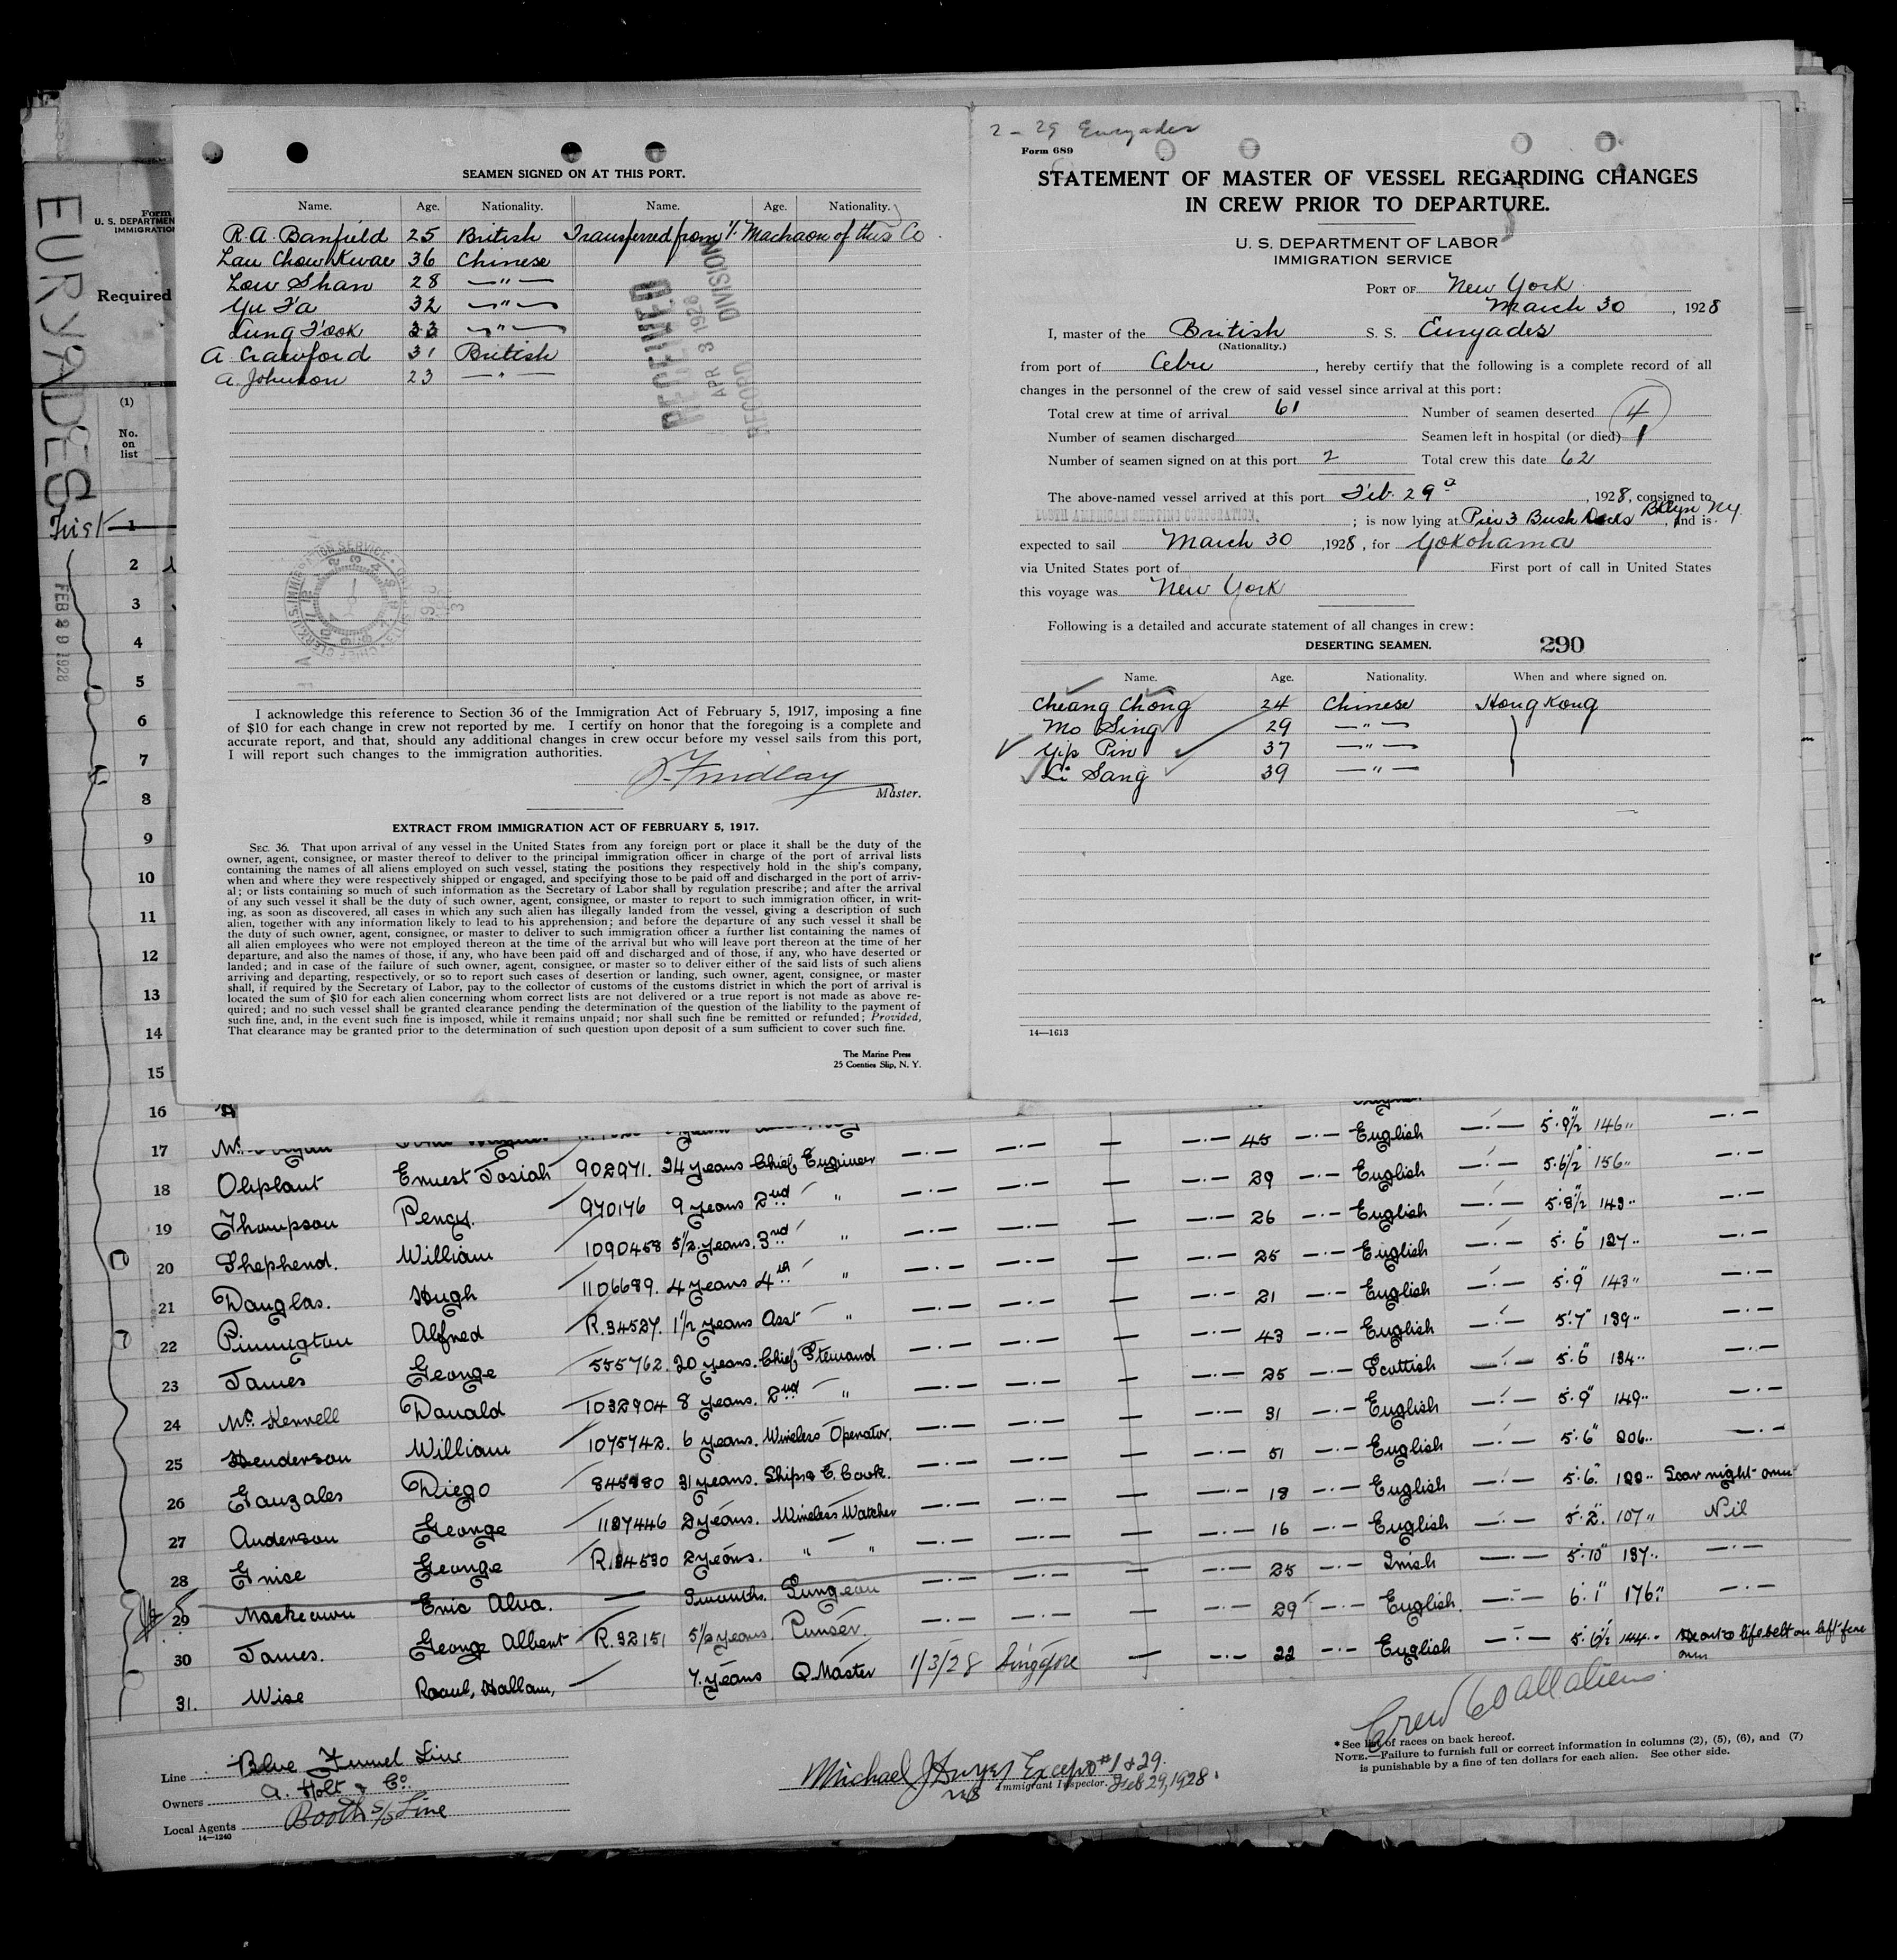 EURYADES
Form
U. S. DEPARTMEN
IMMIGRATIO
Required
(1)
No.
on
list
FEB 29 1928
SEAMEN SIGNED ON AT THIS PORT.
Name. Age. Nationality. Name. Age. Nationality.
R. A. Banfield 25 British Transferred from Machaon of this Co
Lau Chow Kwae 36 Chinese
Low Shan 28 —"—
Yu Fa 32 —"—
Lung Fook 33 —"—
A Crawford 31 British
A. Johnson 23 —"—
RECEIVED
APR 3 1928
RECORD DIVISION
I acknowledge this reference to Section 36 of the Immigration Act of February 5, 1917, imposing a fine
of $10 for each change in crew not reported by me. I certify on honor that the foregoing is a complete and
accurate report, and that, should any additional changes in crew occur before my vessel sails from this port,
I will report such changes to the immigration authorities.
Findlay
Master.
EXTRACT FROM IMMIGRATION ACT OF FEBRUARY 5, 1917.
SEC. 36. That upon arrival of any vessel in the United States from any foreign port or place it shall be the duty of the
owner, agent, consignee, or master thereof to deliver to the principal immigration officer in charge of the port of arrival lists
containing the names of all aliens employed on such vessel, stating the positions they respectively hold in the ship's company,
when and where they were respectively shipped or engaged, and specifying those to be paid off and discharged in the port of arriv-
al; or lists containing so much of such information as the Secretary of Labor shall by regulation prescribe; and after the arrival
of any such vessel it shall be the duty of such owner, agent, consignee, or master to report to such immigration officer, in writ-
ing, as soon as discovered, all cases in which any such alien has illegally landed from the vessel, giving a description of such
alien, together with any information likely to lead to his apprehension; and before the departure of any such vessel it shall be
the duty of such owner, agent, consignee, or master to deliver to such immigration officer a further list containing the names of
all alien employees who were not employed thereon at the time of the arrival but who will leave port thereon at the time of her
departure, and also the names of those, if any, who have been paid off and discharged and of those, if any, who have deserted or
landed; and in case of the failure of such owner, agent, consignee, or master so to deliver either of the said lists of such aliens
arriving and departing, respectively, or so to report such cases of desertion or landing, such owner, agent, consignee, or master
shall, if required by the Secretary of Labor, pay to the collector of customs of the customs district in which the port of arrival is
located the sum of $10 for each alien concerning whom correct lists are not delivered or a true report is not made as above re-
quired; and no such vessel shall be granted clearance pending the determination of the question of the liability to the payment of
such fine, and, in the event such fine is imposed, while it remains unpaid; nor shall such fine be remitted or refunded; Provided,
That clearance may be granted prior to the determination of such question upon deposit of a sum sufficient to cover such fine.
The Marine Press
25 Coenties Slip, N. Y.
2 - 29 Euryades
Form 689
STATEMENT OF MASTER OF VESSEL REGARDING CHANGES
IN CREW PRIOR TO DEPARTURE.
U. S. DEPARTMENT OF LABOR
IMMIGRATION SERVICE
PORT OF New York
March 30, 1928
I, master of the British S. S. Euryades
(Nationality.)
from port of Cebu, hereby certify that the following is a complete record of all
changes in the personnel of the crew of said vessel since arrival at this port:
Total crew at time of arrival 61 Number of seamen deserted 4
Number of seamen discharged Seamen left in hospital (or died) 1
Number of seamen signed on at this port 2 Total crew this date 62
The above-named vessel arrived at this port Feb. 29, 1928, consigned to
AMERICAN SHIPPING CORPORATION. ; is now lying at Pier 3 Bush Docks Bklyn NY., and is
expected to sail March 30, 1928, for Yokohama
via United States port of First port of call in United States
this voyage was New York
Following is a detailed and accurate statement of all changes in crew:
DESERTING SEAMEN. 290
Name. Age. Nationality. When and where signed on.
Cheang Chong 24 Chinese Hong Kong
Mo Sing 29 —"—
Yip Pin 37 —"—
Li Sang 39 —"—
14—1613
1
2
3
4
5
6
7
8
9
10
11
12
13
14
15
16
17 45 English 5.9½ 146
18 Oliphant Ernest Josiah 902971. 24 years Chief Engineer 29 English 5.6½ 156
19 Thompson Percy. 970176 9 years 2nd " 26 English 5.8½ 143
20 Shepherd. William 1090458 5½ years. 3rd " 25 English 5.6" 127
21 Douglas. Hugh 1106689. 4 years 4th " 21 English 5.9" 143
22 Pinnington Alfred R.34527. 1½ years Asst " 43 English 5.7" 139
23 James George 555762. 20 years. Chief Steward 25 Scottish 5.6" 134
24 Mc Kennell Donald 1032904 8 years. 2nd " 31 English 5.9" 149
25 Henderson William 1075742. 6 years. Wireless Operator. 51 English 5.6" 206
26 Gonzales Diego 845980 31 years. Ships & C. Cook. 18 English 5.6. Scar right arm
27 Anderson George 1127446 2 years. Wireless Watcher 16 English 5.2. 107 Nil
28 Grise George R.34530 2 years. " " 25 Irish 5.10" 137
29 Mackeown Eric Alva. 3 months. Surgeon 29 English. 6.1" 176
30 James. George Albert R.32151 5½ years. Purser. 22 English 5.6½ 144 Heart & lifebelt on left fore arm
31. Wise Raoul, Hallam, 7. years Q. Master 1/3/28 Singapore
Crew 60 all aliens
Line Blue Funnel Line
Owners A. Holt & Co.
Local Agents Booth S/S Line
14—1240
Michael J Dwyer Except #1 & 29.
Immigrant Inspector. Feb 29, 1928.
*See list of races on back hereof.
NOTE.—Failure to furnish full or correct information in columns (2), (5), (6), and (7)
is punishable by a fine of ten dollars for each alien. See other side.